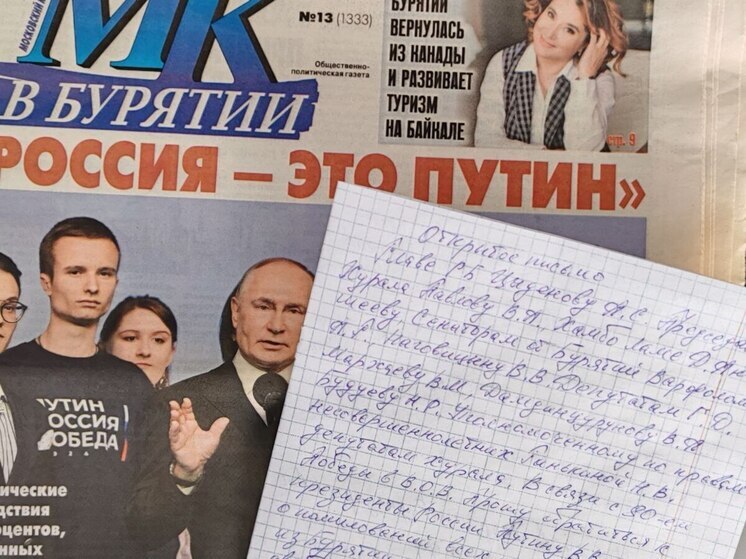 МОСКОВСКИЙ
МК
№13 (1333)
Общественно-
политическая газета
В БУРЯТИИ
БУРЯТИИ
ВЕРНУЛАСЬ
ИЗ КАНАДЫ
И РАЗВИВАЕТ
ТУРИЗМ
НА БАЙКАЛЕ
стр. 9
РОССИЯ – ЭТО ПУТИН»
УТИН
ОССИЯ
ОБЕДА
ические
дствия
оцентов,
нных
Открытое письмо
Главе РБ Циденову А.С. Председа
Хурала Павлову В.А., Хамбо Ламе Д. Аю
шееву Сенаторам от Бурятии Варфолом
А.Г., Наговицыну В.В. Депутатам Г.Д.
Мархаеву В.М., Дамдинцурунову В.А.
Будуеву Н.Р. Уполномоченному по правам
несовершеннолетних Ганькиной Н.В.
депутатам хурала. В связи с 80-ем
Победы в В.О.В. Прошу обратиться с
президенту России Путину В.В.
о помиловании всех
из Бурятии